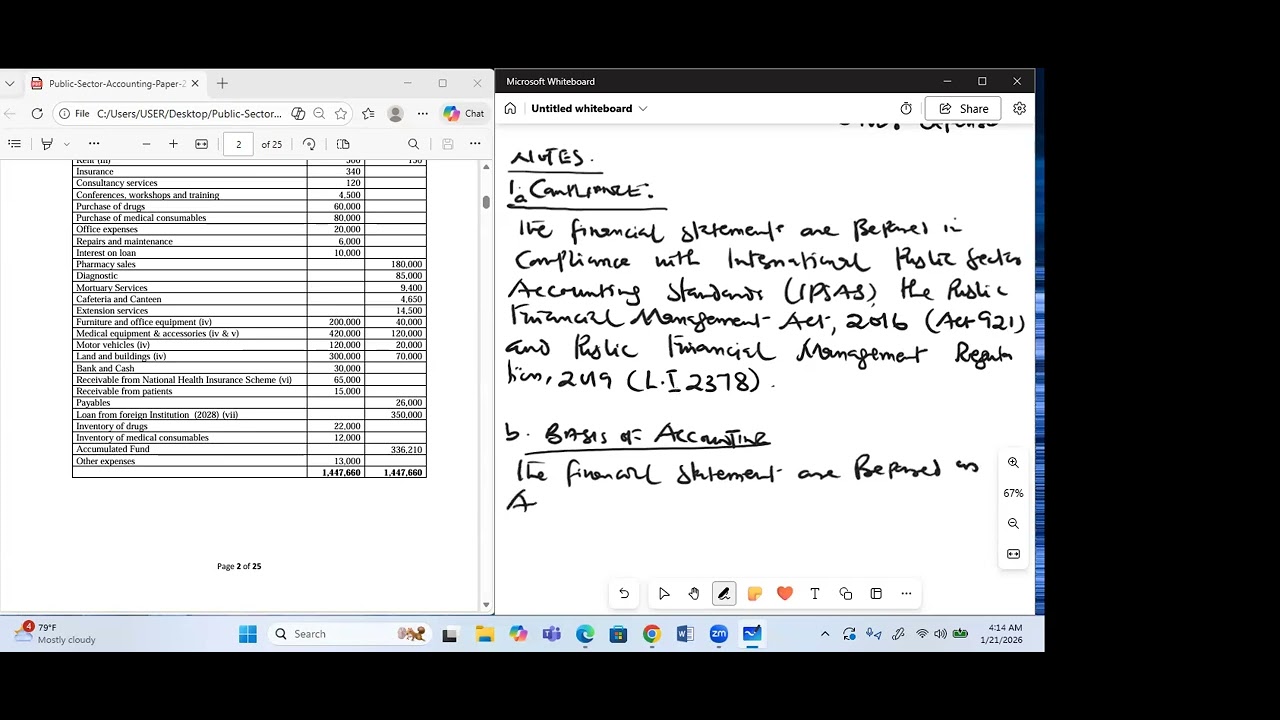 Public-Sector-Accounting-Paper-2
Microsoft Whiteboard
File C:/Users/USER/Desktop/Public-Sector... Chat
Untitled whiteboard Share
2 of 25
Rent (iii) 500 150
Insurance 340
Consultancy services 120
Conferences, workshops and training 4,500
Purchase of drugs 60,000
Purchase of medical consumables 80,000
Office expenses 20,000
Repairs and maintenance 6,000
Interest on loan 10,000
Pharmacy sales 180,000
Diagnostic 85,000
Mortuary Services 9,400
Cafeteria and Canteen 4,650
Extension services 14,500
Furniture and office equipment (iv) 200,000 40,000
Medical equipment & accessories (iv & v) 420,000 120,000
Motor vehicles (iv) 120,000 20,000
Land and buildings (iv) 300,000 70,000
Bank and Cash
Receivable from National Health Insurance Scheme (vi) 65,000
Receivable from patients 15,000
Payables 26,000
Loan from foreign Institution (2028) (vii) 350,000
Inventory of drugs 22,000
Inventory of medical consumables 12,000
Accumulated Fund 336,210
Other expenses
1,447,660 1,447,660
Page 2 of 25
NOTES.
1.a Compliance.
The financial statements are Prepared in
Compliance with International Public Sector
Accounting Standards (IPSAS), the Public
Financial Management Act, 2016 (Act 921)
and Public Financial Management Regula
tion, 2019 (L.I 2378).
b. BASIS of Accounting
The financial statement are Prepared on
A
67%
4
79°F
Mostly cloudy
Search
zm
4:14 AM
1/21/2026